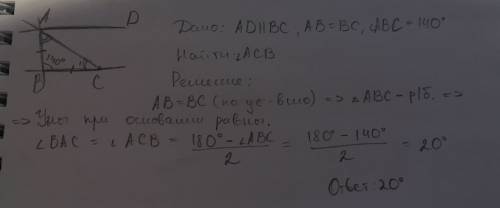 A
D
140°
B
C
Дано: AD||BC, AB=BC, ∠ABC=140°
Найти: ∠ACB
Решение:
AB=BC (по усл-вию) => ∠ABC - р/б. =>
=> Углы при основании равны.
∠BAC = ∠ACB = 180° - ∠ABC / 2 = 180° - 140° / 2 = 20°
Ответ: 20°